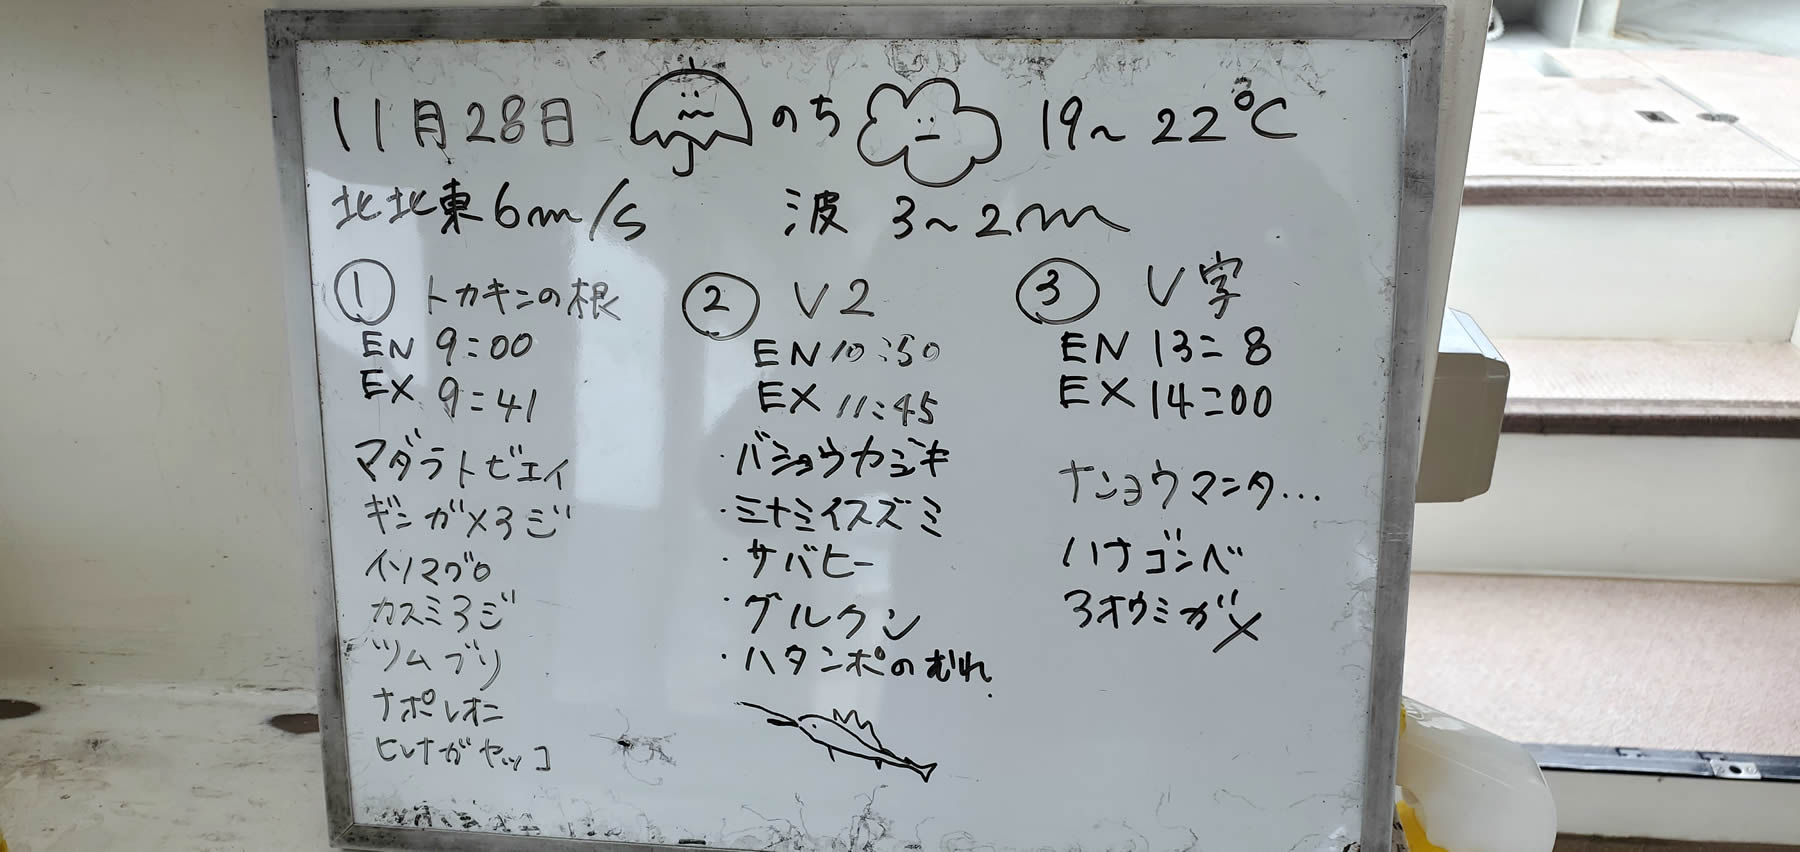 11月28日 のち 19~22℃
北北東6m/s 波 3~2m
① トカキンの根
EN 9:00
EX 9:41
マダラトビエイ
ギンガメヨジ
イソマグロ
カスミヨジ
ツムブリ
ナポレオン
ヒレナガヤッコ
② V2
EN 10:50
EX 11:45
・バショウカジキ
・ミナミイスズミ
・サバヒー
・グルクン
・ハタンポのむれ
③ V字
EN 13:8
EX 14:00
ナンヨウマンタ...
ハナゴンベ
ヨオウミガメ